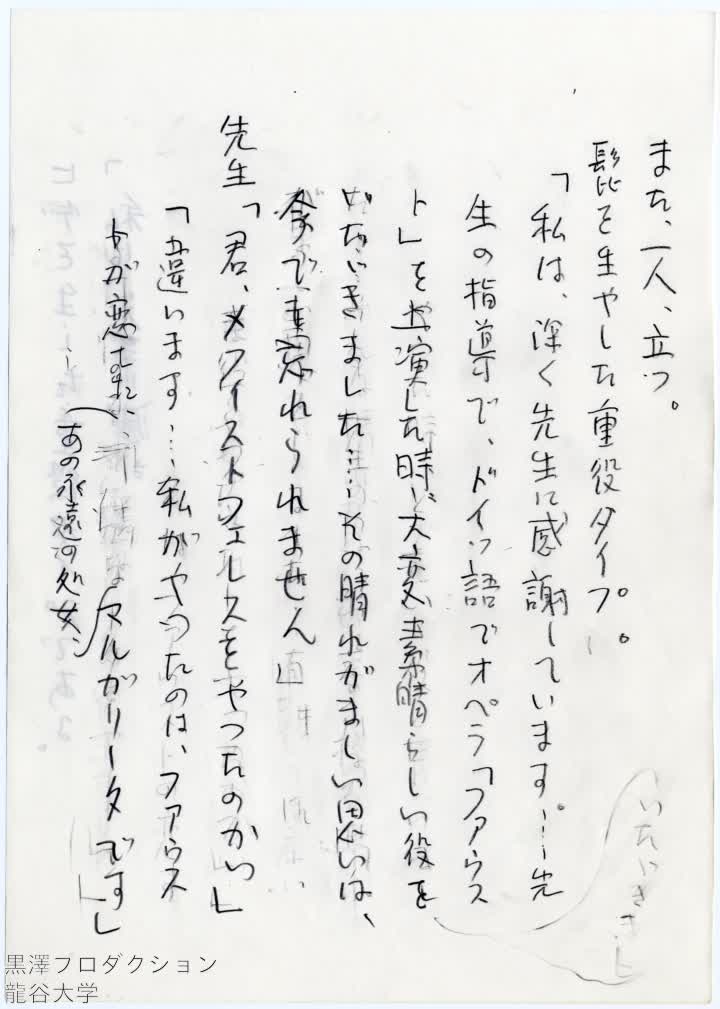 また、一人、立つ。
髭を生やした重役タイプ。
「私は、深く先生に感謝しています……先
生の指導で、ドイツ語でオペラ「ファウス
ト」を上演した時に大変素晴らしい役を
いただきました……その晴れがましい思いは、
今でも忘れられません」
先生「君、メフィストフェレスをやったのかい」
「違います……私がやったのは、ファウス
トが恋した
マルガリータです」
あの永遠の処女、
いただきまし
黒澤プロダクション
龍谷大学